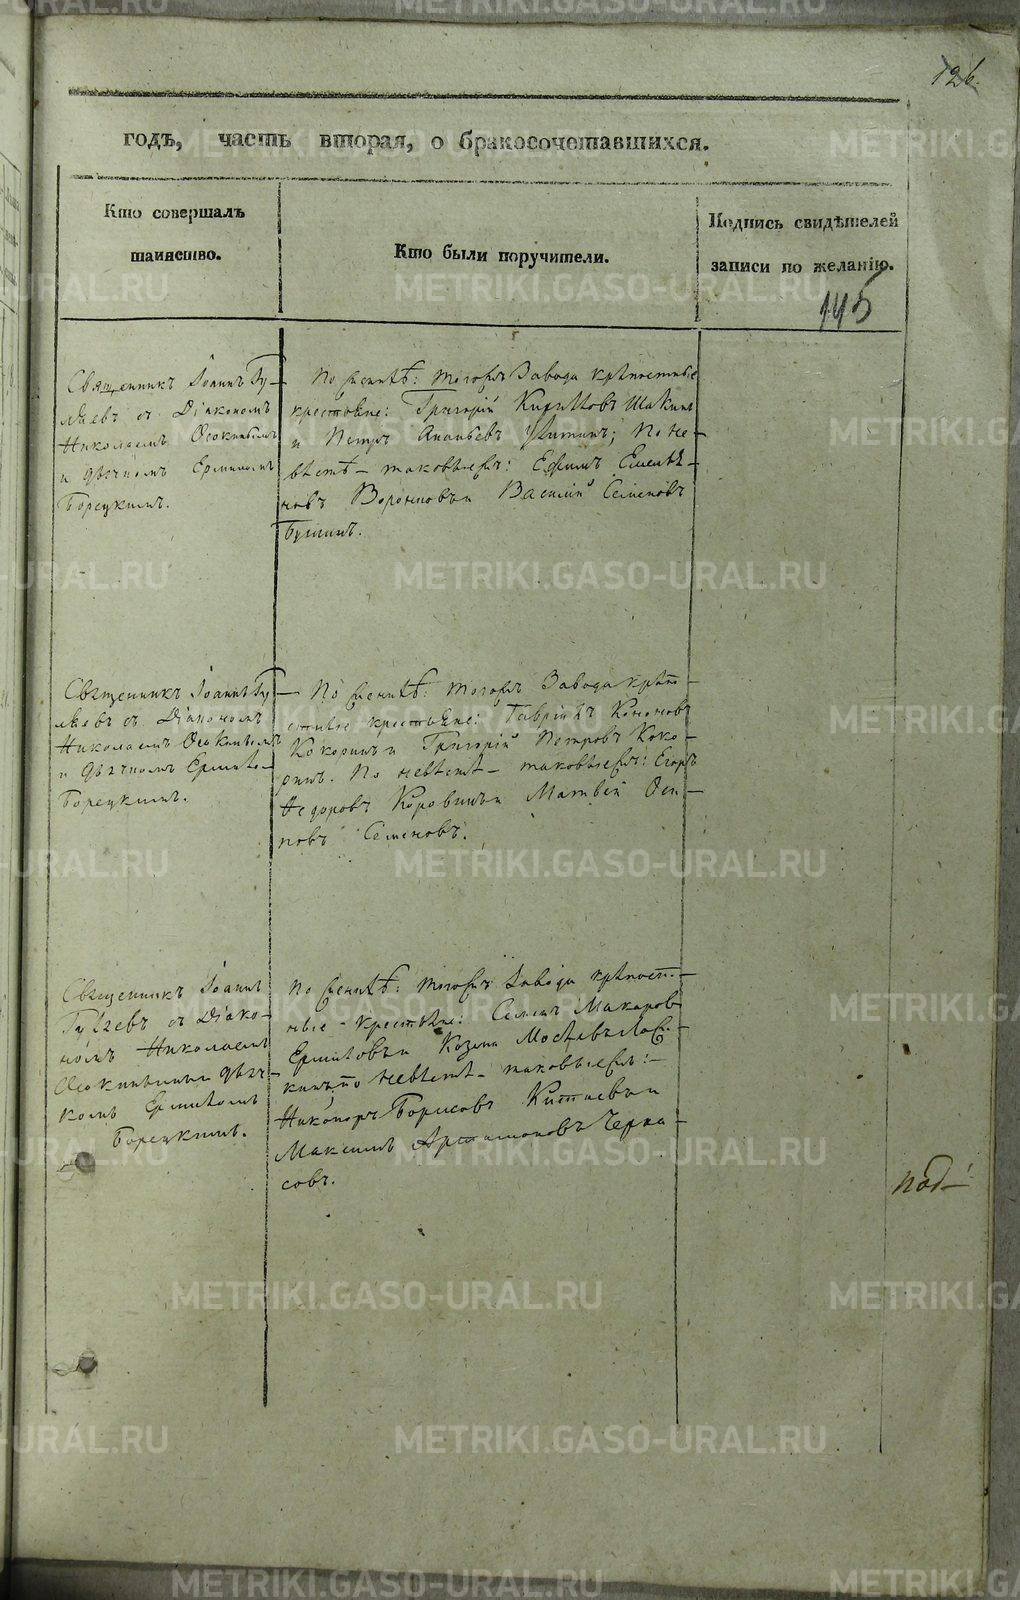 126.
годъ, часть вторая, о бракосочетавшихся.
Кто совершалъ
таинство.
Кто были поручители.
Подпись свидѣтелей
записи по желанію.
145
Священникъ Іоаннъ Гу-
ляевъ съ Діакономъ
Николаемъ Осокинымъ
и дьячкомъ Ермиломъ
Борецкимъ.
По женихѣ: тогожъ Завода крѣпостные
крестьяне: Григорій Кириловъ
и Петръ Ананьевъ По не-
вѣстѣ - таковыежъ: Ефимъ Емелья-
новъ Воронцовъ и Василій Семеновъ
Священникъ Іоаннъ Гу-
ляевъ съ Діакономъ
Николаемъ Осокинымъ
и дьячкомъ
Борецкимъ.
По женихѣ: тогожъ Завода крѣпо-
стные крестьяне: Гавріилъ Кононовъ
Кокоринъ и Григорій Петровъ Коко-
ринъ. По невѣстѣ - таковыежъ: Егоръ
Федоровъ Коровинъ и Матвей Оси-
повъ Семеновъ.
Священникъ Іоаннъ
Гуляевъ съ Діако-
номъ Николаемъ
Осокинымъ и дьяч-
комъ
Борецкимъ.
По женихѣ: тогожъ Завода крѣпост-
ные - крестьяне: Семенъ Макаровъ
и Козма
по невѣстѣ - таковыежъ:
Никаноръ Борисовъ Китаевъ и
Максимъ Артамоновъ Черка-
совъ.
METRIKI.GASO-URAL.RU